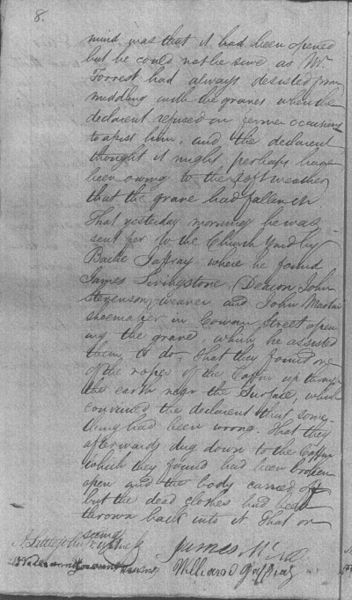 8.
mind was that it had been opened
but he could not be sure as Mr
Forrest had always desisted from
meddling with the graves when the
declarant refused on former occasions
to assist him, and the declarant
thought it might perhaps have
been owing to the soft weather
that the grave had fallen in
That yesterday morning he was
sent for to the Church Yard by
Bailie Jaffray where he found
James Livingstone, Deacon John
Stevenson, weaver and John Martin
shoemaker in Cowan Street open
ing the grave which he assisted
them to do. That they found one
of the ropes of the Coffin up through
the earth near the surface, which
convinced the declarant that some-
thing had been wrong. That they
afterwards dug down to the Coffin
which they found had been broken
open and the body carried off
but the dead clothes had been
thrown back into it That on
James
William